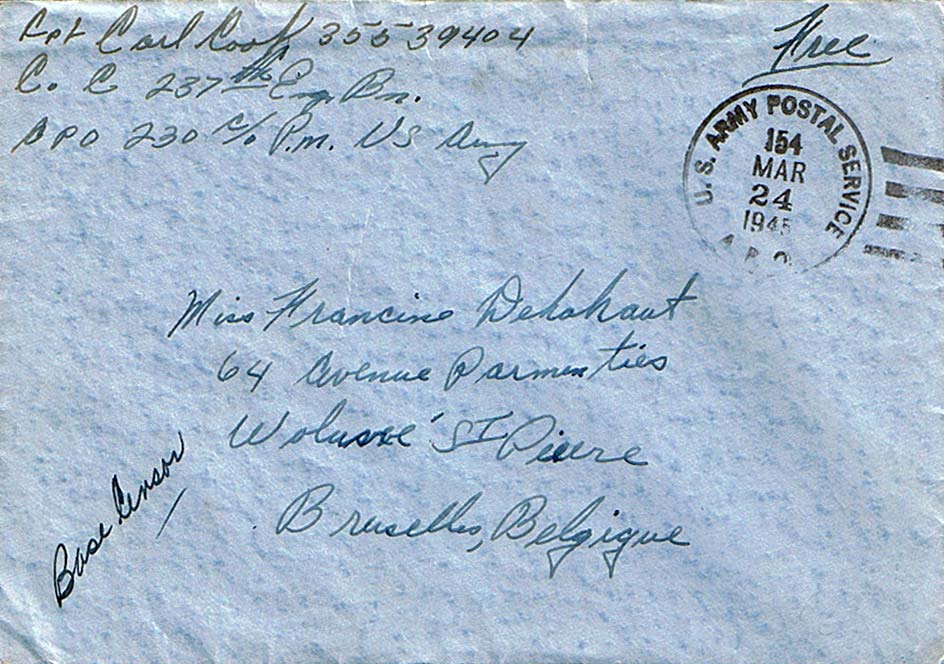 Cpl Carl Cook 35539404
Co. C 237th Eng. Bn.
APO 230 c/o P.M. US Army
Free
U.S. ARMY POSTAL SERVICE
154
MAR
24
1945
A.P.O.
Miss Francine
64 Avenue Parmenties
Woluwé St Pierre
Bruselles, Belgique
Base Censor